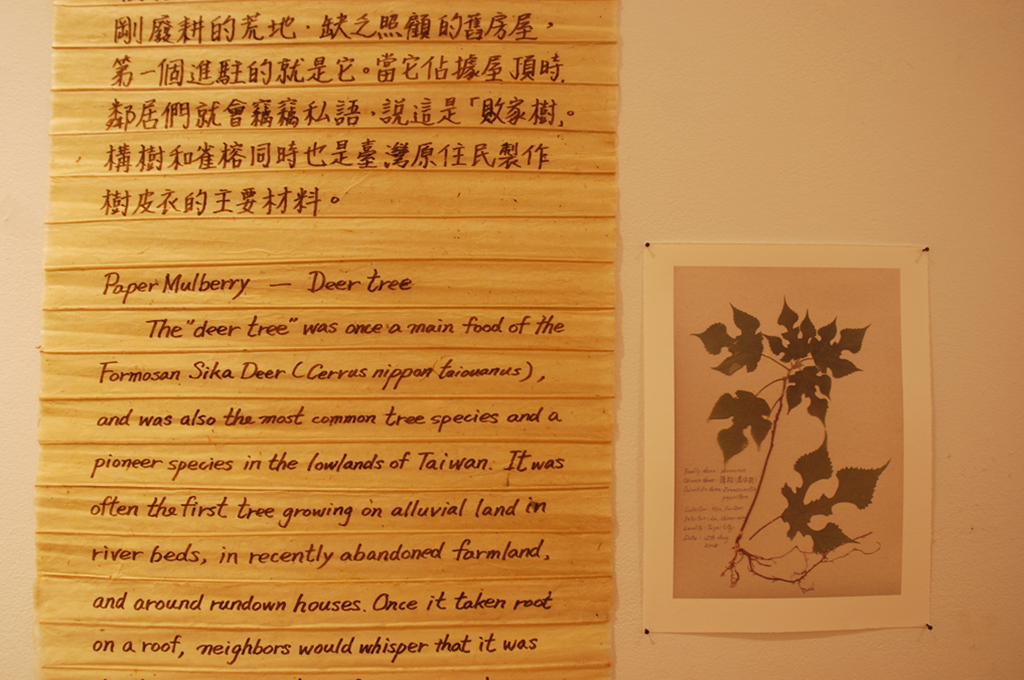 剛廢耕的荒地,缺乏照顧的舊房屋,
第一個進駐的就是它。當它佔據屋頂時,
鄰居們就會竊竊私語,說這是「敗家樹」。
構樹和雀榕同時也是臺灣原住民製作
樹皮衣的主要材料。
Paper Mulberry — Deer tree
The "deer tree" was once a main food of the
Formosan Sika Deer (Cerrus nippon taiouanus),
and was also the most common tree species and a
pioneer species in the lowlands of Taiwan. It was
often the first tree growing on alluvial land in
river beds, in recently abandoned farmland,
and around rundown houses. Once it taken root
on a roof, neighbors would whisper that it was